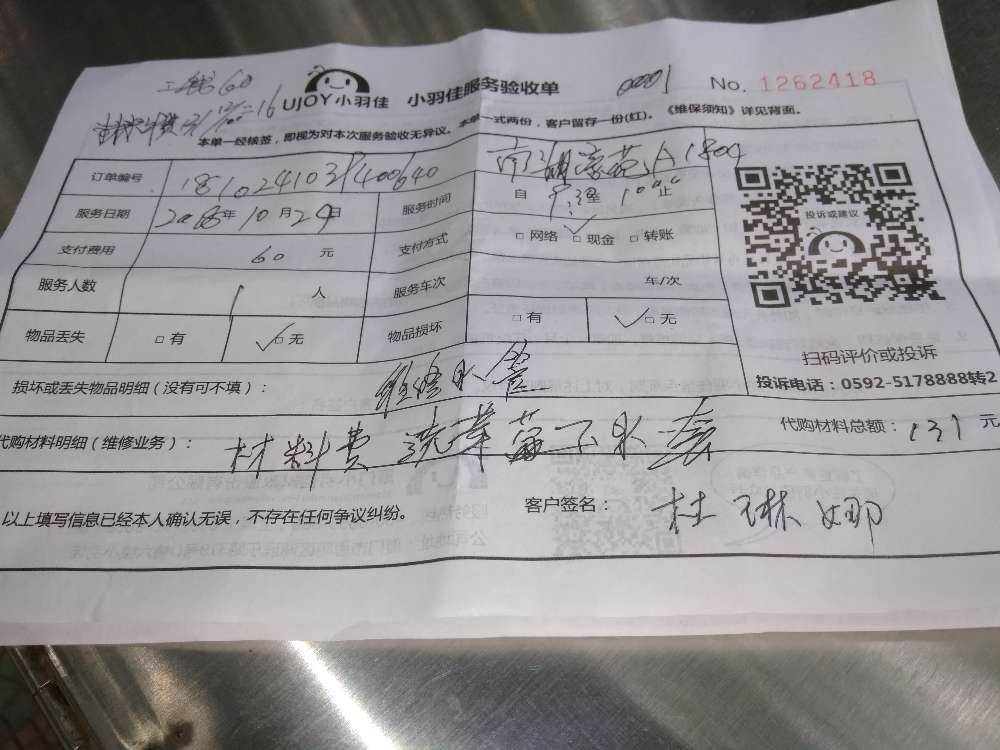 工钱60
UJOY小羽佳 小羽佳服务验收单 0001 No. 1262418
本单一经核签，即视为对本次服务验收无异议。本单一式两份，客户留存一份(红)。《维保须知》详见背面。
订单编号 A1804
服务日期 2018年10月29日 服务时间 自 至 止
投诉或建议
支付费用 60 元 支付方式 □网络 □现金 □转账
服务人数 1 人 服务车次 车/次
物品丢失 □有 □无 物品损坏 □有 □无
扫码评价或投诉
投诉电话：0592-5178888转2
损坏或丢失物品明细（没有可不填）： 维修水管
代购材料明细（维修业务）： 材料费 洗 下水 代购材料总额： 137 元
以上填写信息已经本人确认无误，不存在任何争议纠纷。 客户签名： 杜琳娜